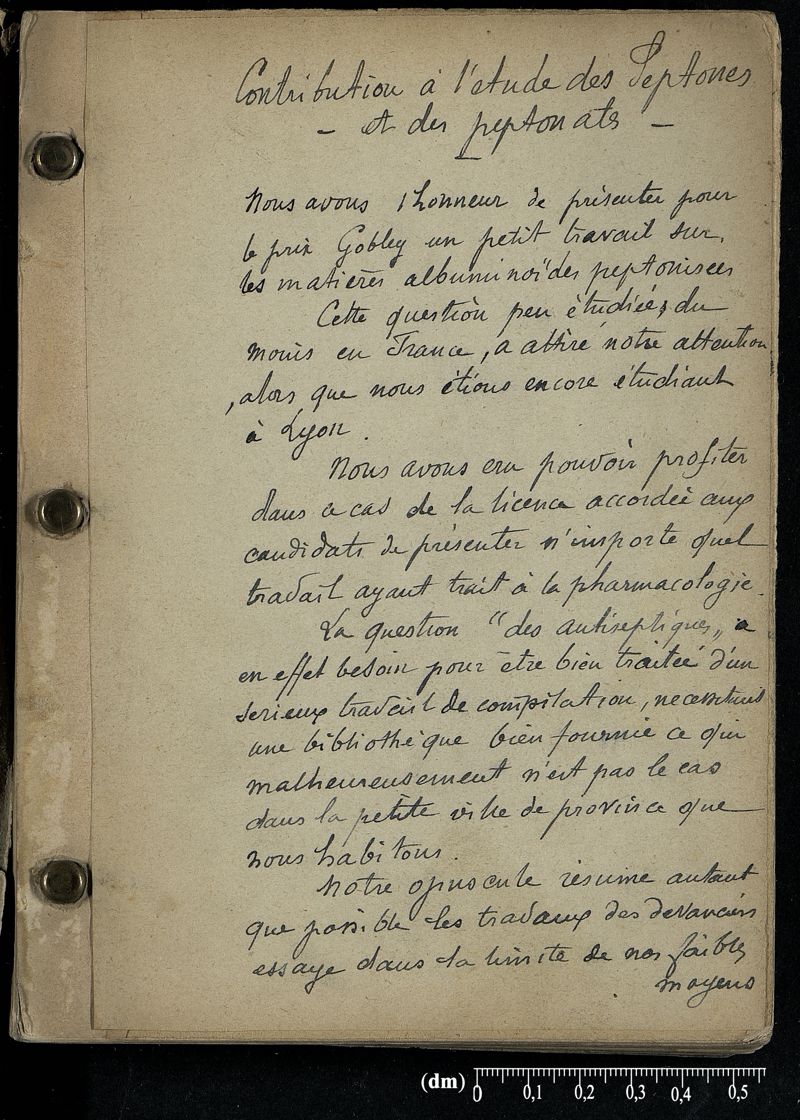 Contribution à l'etude des Peptones
- et des peptonats -
Nous avons l honneur de présenter pour
le prix Gobley un petit travail sur
les matières albuminoïdes peptonisees
Cette question peu étudiée, du
moins en France, a attiré notre attention
, alors que nous étions encore étudiant
à Lyon.
Nous avons cru pouvoir profiter
dans ce cas de la licence accordée aux
candidats de présenter n'importe quel
travail ayant trait à la pharmacologie.
La question "des antiseptiques" a
en effet besoin pour être bien traitée d'un
serieux travail de compilation, necessitant
une bibliothèque bien fournie ce qui
malheureusement n'est pas le cas
dans la petite ville de province que
nous habitons.
Notre opuscule résume autant
que possible les travaux des devanciers
essaye dans la limite de nos faibles
moyens
(dm) 0 0,1 0,2 0,3 0,4 0,5